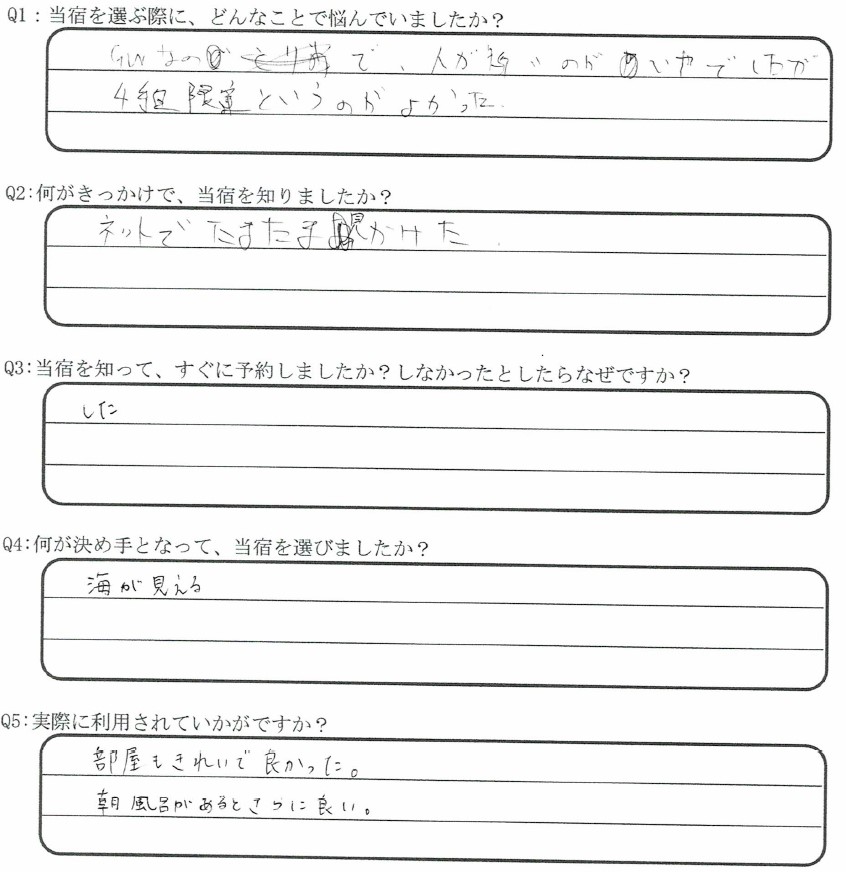 Q1：当宿を選ぶ際に、どんなことで悩んでいましたか？
GWなので、人が多いのがいやでしたが
4組限定というのがよかった.
Q2：何がきっかけで、当宿を知りましたか？
ネットでたまたま見かけた.
Q3：当宿を知って、すぐに予約しましたか？しなかったとしたらなぜですか？
した
Q4：何が決め手となって、当宿を選びましたか？
海が見える
Q5：実際に利用されていかがですか？
部屋もきれいで良かった。
朝風呂があるとさらに良い。